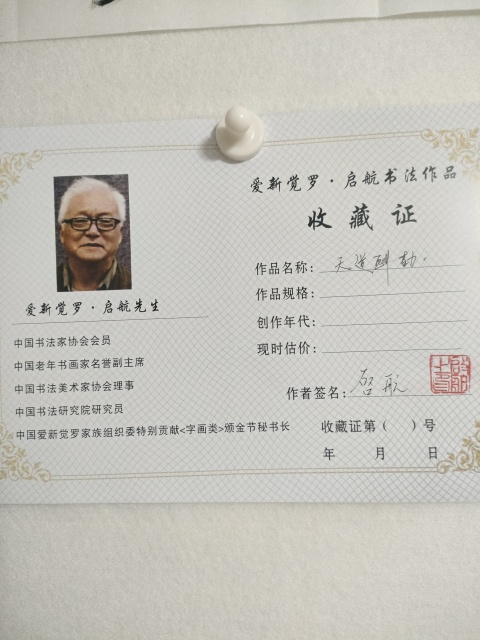 爱新觉罗·启航书法作品
收藏证
爱新觉罗·启航先生
中国书法家协会会员
中国老年书画家名誉副主席
中国书法美术家协会理事
中国书法研究院研究员
中国爱新觉罗家族组织委特别贡献<字画类>颁金节秘书长
作品名称：天道酬勤
作品规格：
创作年代：
现时估价：
作者签名：启航
收藏证第（ ）号
年 月 日